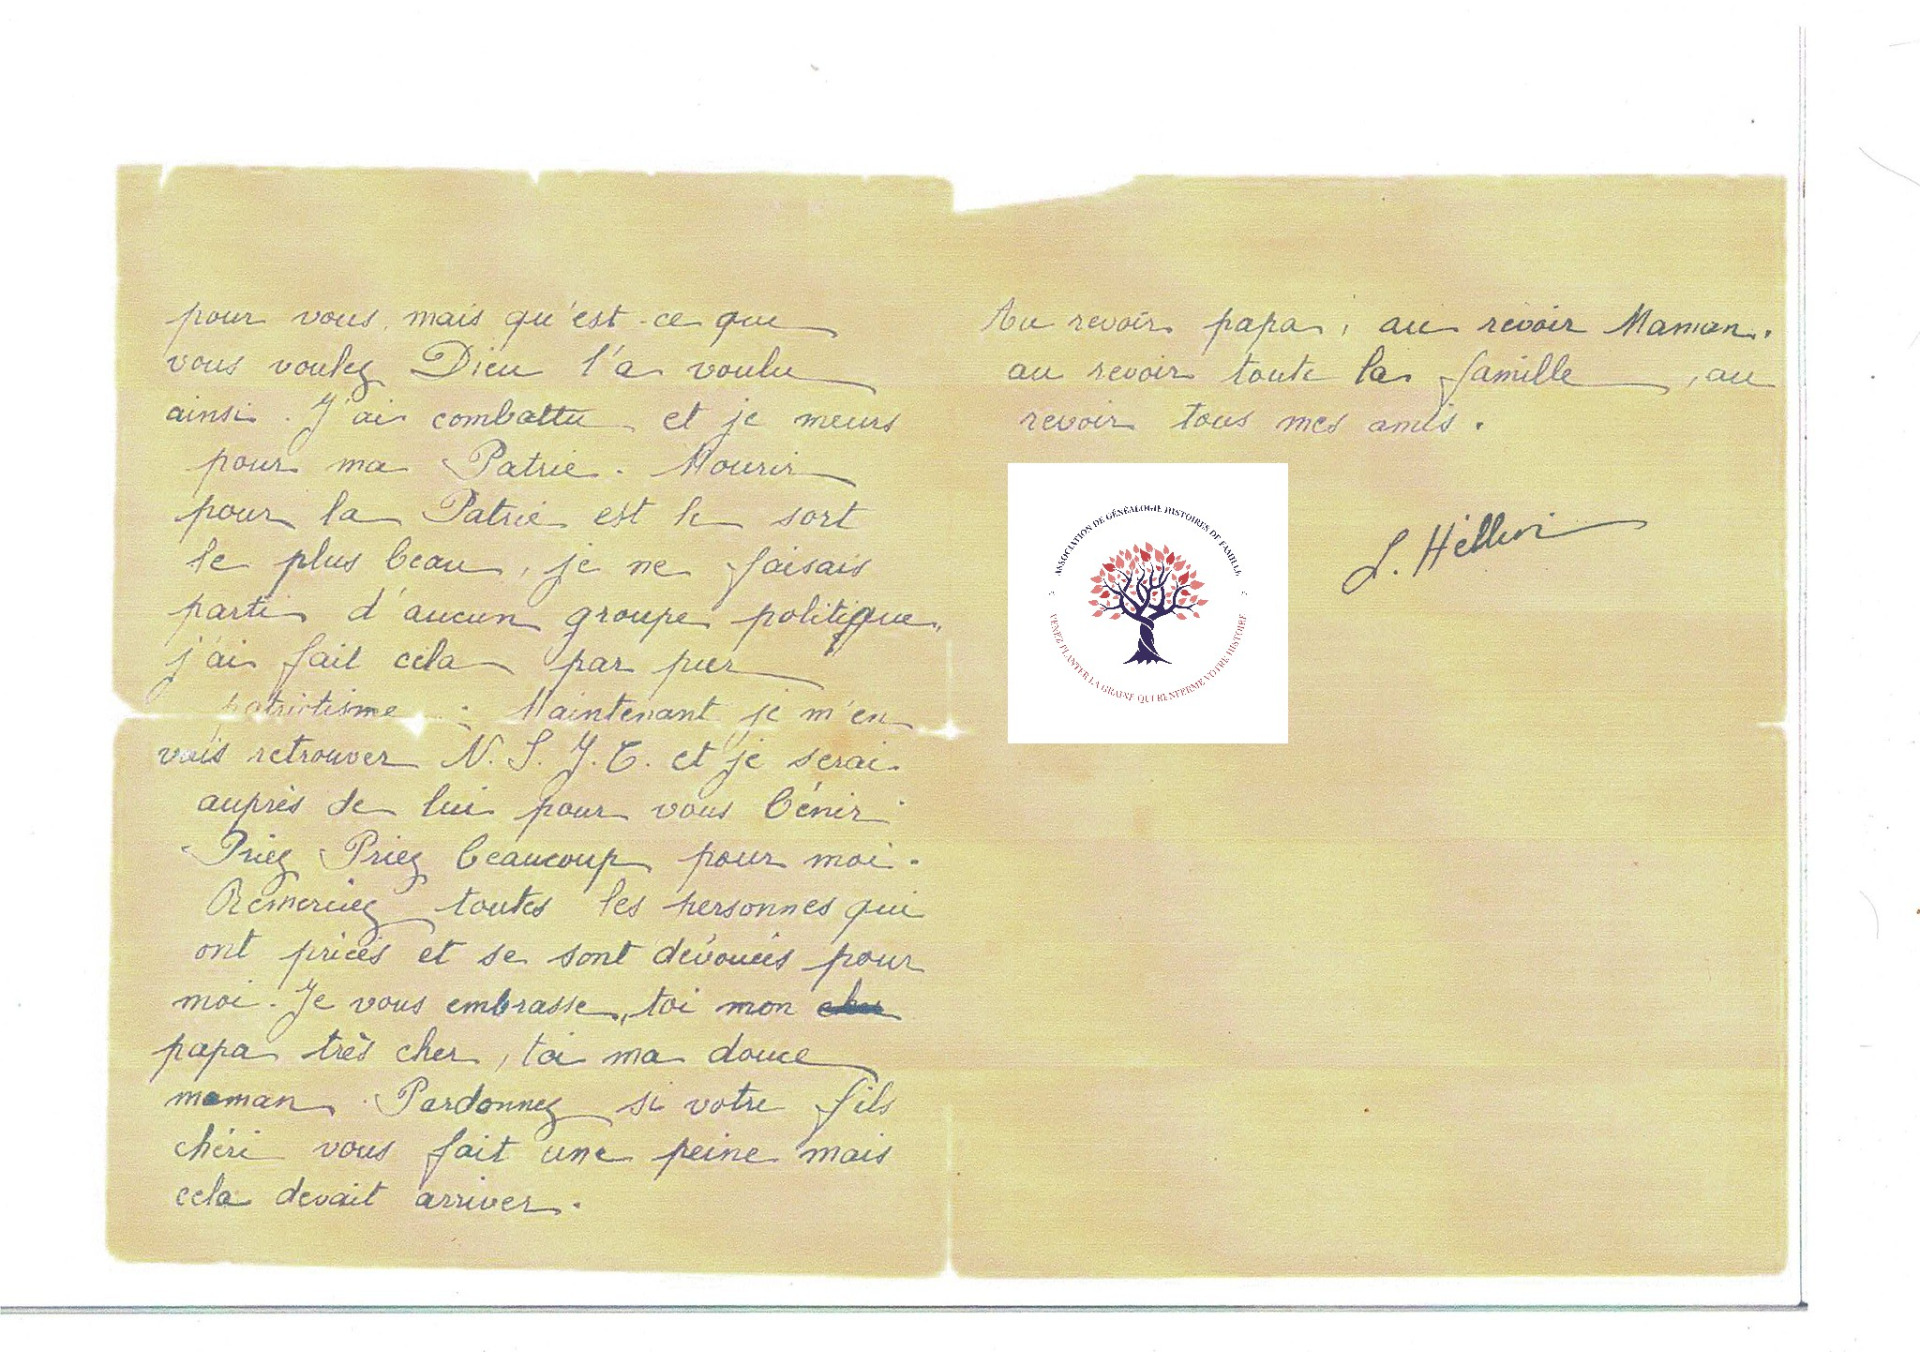 pour vous, mais qu'est-ce que
vous voulez Dieu l'a voulu
ainsi. J'ai combattu et je meurs
pour ma Patrie. Mourir
pour la Patrie est le sort
le plus beau, je ne faisais
parti d'aucun groupe politique,
j'ai fait cela par pur
patriotisme. Maintenant je m'en
vais retrouver N. S. J. C. et je serai
auprès de lui pour vous bénir.
Priez Priez beaucoup pour moi.
Remerciez toutes les personnes qui
ont priées et se sont dévouées pour
moi. Je vous embrasse, toi mon
papa très cher, toi ma douce
maman. Pardonnez si votre fils
chéri vous fait une peine mais
cela devait arriver.
Au revoir papa, au revoir Maman,
au revoir toute la famille, au
revoir tous mes amis.
ASSOCIATION DE GÉNÉALOGIE HISTOIRES DE FAMILLE
VENEZ PLANTER LA GRAINE QUI RENFERME VOTRE HISTOIRE